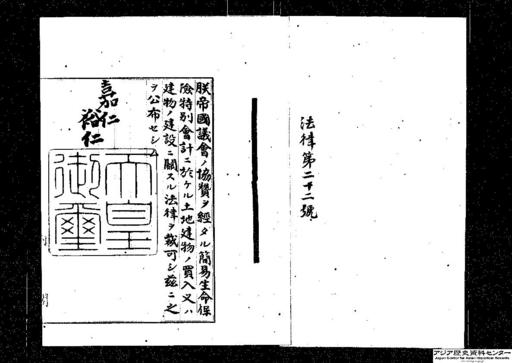 法律第二十二號
朕帝國議會ノ協贊ヲ經タル簡易生命保
險特別會計ニ於ケル土地建物ノ買入又ハ
建物ノ建設ニ關スル法律ヲ裁可シ茲ニ之
ヲ公布セシム
嘉仁
裕仁
天皇
御璽
アジア歴史資料センター
Japan Center for Asian Historical Records